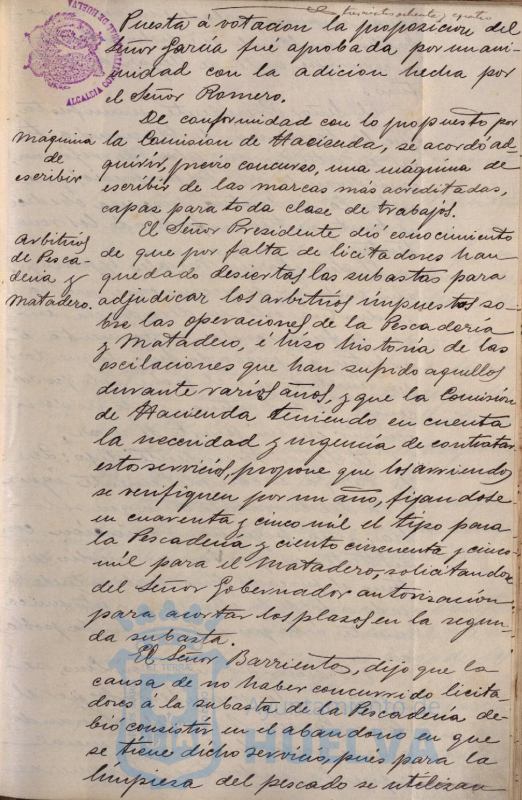 trescientos ochenta y cuatro
Puesta á votacion la proposicion del
Señor García fué aprobada por unani-
midad con la adicion hecha por
el Señor Romero.
De conformidad con lo propuesto por
Máquina de escribir
la Comision de Hacienda, se acordó ad-
quirir, previo concurso, una máquina de
escribir de las marcas más acreditadas,
capas para toda clase de trabajos.
El Señor Presidente dió conocimiento
Arbitrios de Pesca-
deria y
Matadero.
de que por falta de licitadores han
quedado desiertas las subastas para
adjudicar los arbitrios impuestos so-
bre las operaciones de la Pescaderia
y Matadero, é hiso historia de las
oscilaciones que han sufrido aquellos
durante varios años, y que la Comisión
de Hacienda teniendo en cuenta
la necesidad y urgencia de contratar
estos servicios, propone que los arriendos
se verifiquen por un año, fijandose
en cuarenta y cinco mil el tipo para
la Pescadería y ciento cincuenta y cinco
mil para el Matadero, solicitandose
del Señor Gobernador autorisación
para acortar los plasos en la segun-
da subasta.
El Señor Barrientos, dijo que la
causa de no haber concurrido licita
dores á la subasta de la Pescadería de-
bió consistir en el abandono en que
se tiene dicho servicio, pues para la
limpiesa del pescado se utilizan
Ayuntamiento de
HUELVA